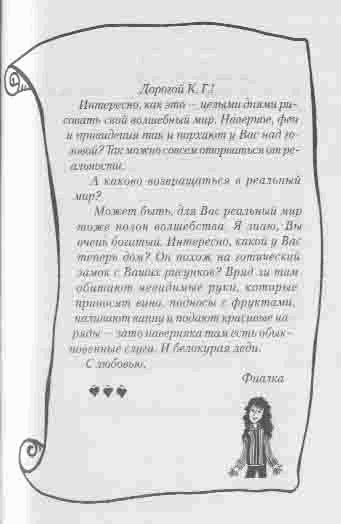 Дорогой К. Г.!
Интересно, как это — целыми днями ри-
совать свой волшебный мир. Наверное, феи
и привидения так и порхают у Вас над го-
ловой? Так можно совсем оторваться от ре-
альности.
А каково возвращаться в реальный
мир?
Может быть, для Вас реальный мир
тоже полон волшебства. Я знаю, Вы
очень богатый. Интересно, какой у Вас
теперь дом? Он похож на готический
замок с Ваших рисунков? Вряд ли там
обитают невидимые руки, которые
приносят вино, подносы с фруктами,
наливают ванну и подают красивые на-
ряды — зато наверняка там есть обык-
новенные слуги. И белокурая леди.
С любовью,
Фиалка